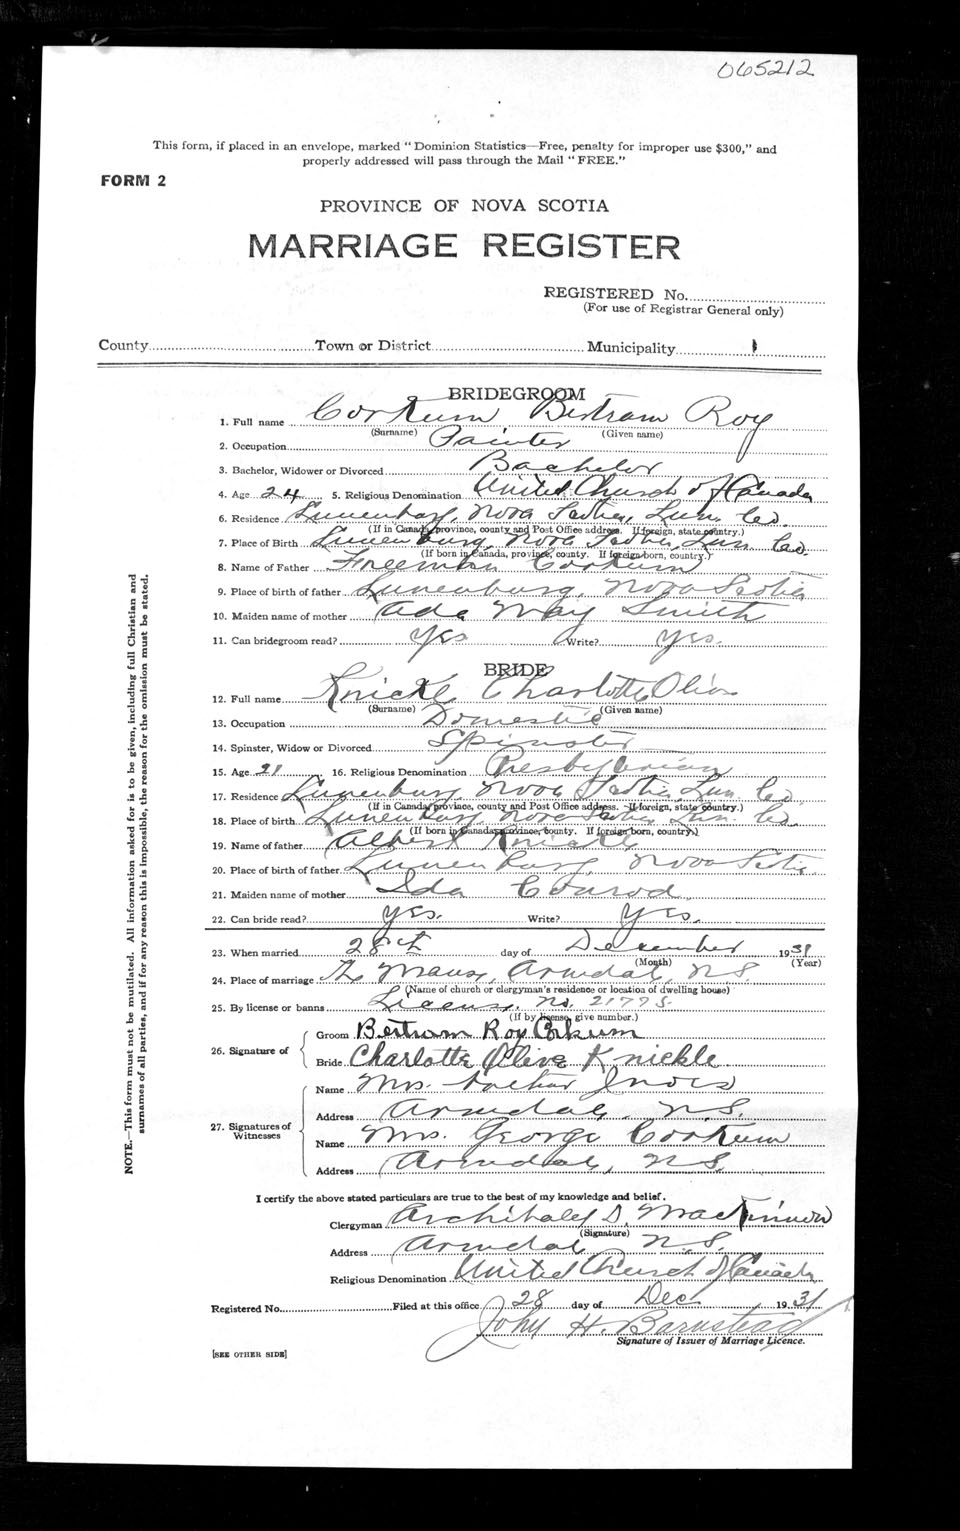 065212
This form, if placed in an envelope, marked "Dominion Statistics—Free, penalty for improper use $300," and
properly addressed will pass through the Mail "FREE."
FORM 2
PROVINCE OF NOVA SCOTIA
MARRIAGE REGISTER
REGISTERED No.
(For use of Registrar General only)
County Town or District Municipality
BRIDEGROOM
1. Full name Corkum Bertram Roy
(Surname) (Given name)
2. Occupation Painter
3. Bachelor, Widower or Divorced Bachelor
4. Age 24 5. Religious Denomination United Church of Canada
6. Residence Lunenburg, Nova Scotia, Lun. Co.
(If in Canada, province, county and Post Office address. If foreign, state country.)
7. Place of Birth Lunenburg, Nova Scotia, Lun. Co.
(If born in Canada, province, county. If foreign born, country.)
8. Name of Father Freeman Corkum
9. Place of birth of father Lunenburg, Nova Scotia
10. Maiden name of mother Ada May Smith
11. Can bridegroom read? Yes Write? Yes.
BRIDE
12. Full name Knickle Charlotte Olive
(Surname) (Given name)
13. Occupation Domestic
14. Spinster, Widow or Divorced Spinster
15. Age 21 16. Religious Denomination Presbyterian
17. Residence Lunenburg, Nova Scotia, Lun. Co.
(If in Canada, province, county and Post Office address. If foreign, state country.)
18. Place of birth Lunenburg, Nova Scotia Lun. Co.
(If born in Canada, province, county. If foreign born, country.)
19. Name of father Albert Knickle
20. Place of birth of father Lunenburg, Nova Scotia
21. Maiden name of mother Ida Conrod
22. Can bride read? Yes. Write? Yes.
23. When married 28th day of December 1931
(Month) (Year)
24. Place of marriage The Manse, Armdale, N.S.
(Name of church or clergyman's residence or location of dwelling house)
25. By license or banns License. No. 21778
(If by license, give number.)
26. Signature of Groom Bertram Roy Corkum
Bride Charlotte Olive Knickle
27. Signatures of Witnesses Name Mrs.
Address Armdale, N.S.
Name Mrs. George Corkum
Address Armdale, N.S.
I certify the above stated particulars are true to the best of my knowledge and belief.
Clergyman Archibald D. MacKinnon
(Signature)
Address Armdale N.S.
Religious Denomination United Church of Canada
Registered No. Filed at this office 28 day of Dec 1931
John H. Barnstead
Signature of Issuer of Marriage Licence.
[SEE OTHER SIDE]
NOTE.—This form must not be mutilated. All information asked for is to be given, including full Christian and
surnames of all parties, and if for any reason this is impossible, the reason for the omission must be stated.